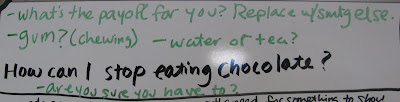 -what's the payoff for you? Replace w/smtg else.
-gum? (chewing) -water or tea?
How can I stop eating chocolate?
-are you sure you have to?
for something to show